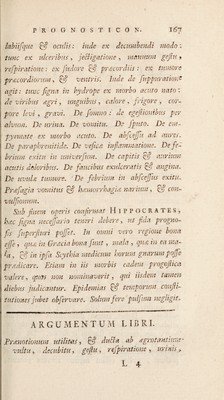 PROGNOSTICON. 167
labiisque & oculis: inde ex decumbendi modo:
tunc ex ulceribus, jectigatione, manuum gestu,
respiratione: ex sudore & præcordiis: ex tumore
præcordiorum, & ventris. Inde de suppuratione
agit: tunc signa in hydrope ex morbo acuto nato:
de viribus ægri, unguibus, calore, frigore, cor-
pore levi, gravi. De somno: de egestionibus per
alvum. De urina. De vomitu. De sputo. De em-
pyemate ex morbo acuto. De abscessu ad aures.
De paraphrenitide. De vesicæ inflammatione. De fe-
brium exitu in universum. De capitis & aurium
acutis doloribus. De faucibus exulceratis & angina.
De uvula tumore. De febrium in abscessus exitu.
Præsagia vomitus & hæmorrhagiæ narium, & con-
vulsionum.
Sub finem operis confirmat HIPPOCRATES,
hæc signa necessaria teneri debere, ut fida progno-
sis superstrui possit. In omni vero regione bona
esse, quæ in Græcia bona sunt, mala, quæ in ea ma-
la, & in ipsa Scythia medicum horum gnarum posse
prædicare. Etiam in iis morbis eadem prognostica
valere, quos non nominaverit, qui iisdem tamen
diebus judicantur. Epidemias & temporum consti-
tutiones jubet observare. Solum fere pulsum negligit.
ARGUMENTUM LIBRI.
Prænotionum utilitas, & ducta ab ægrotantium
vultu, decubitu, gestu, respiratione, urinis,
L 4